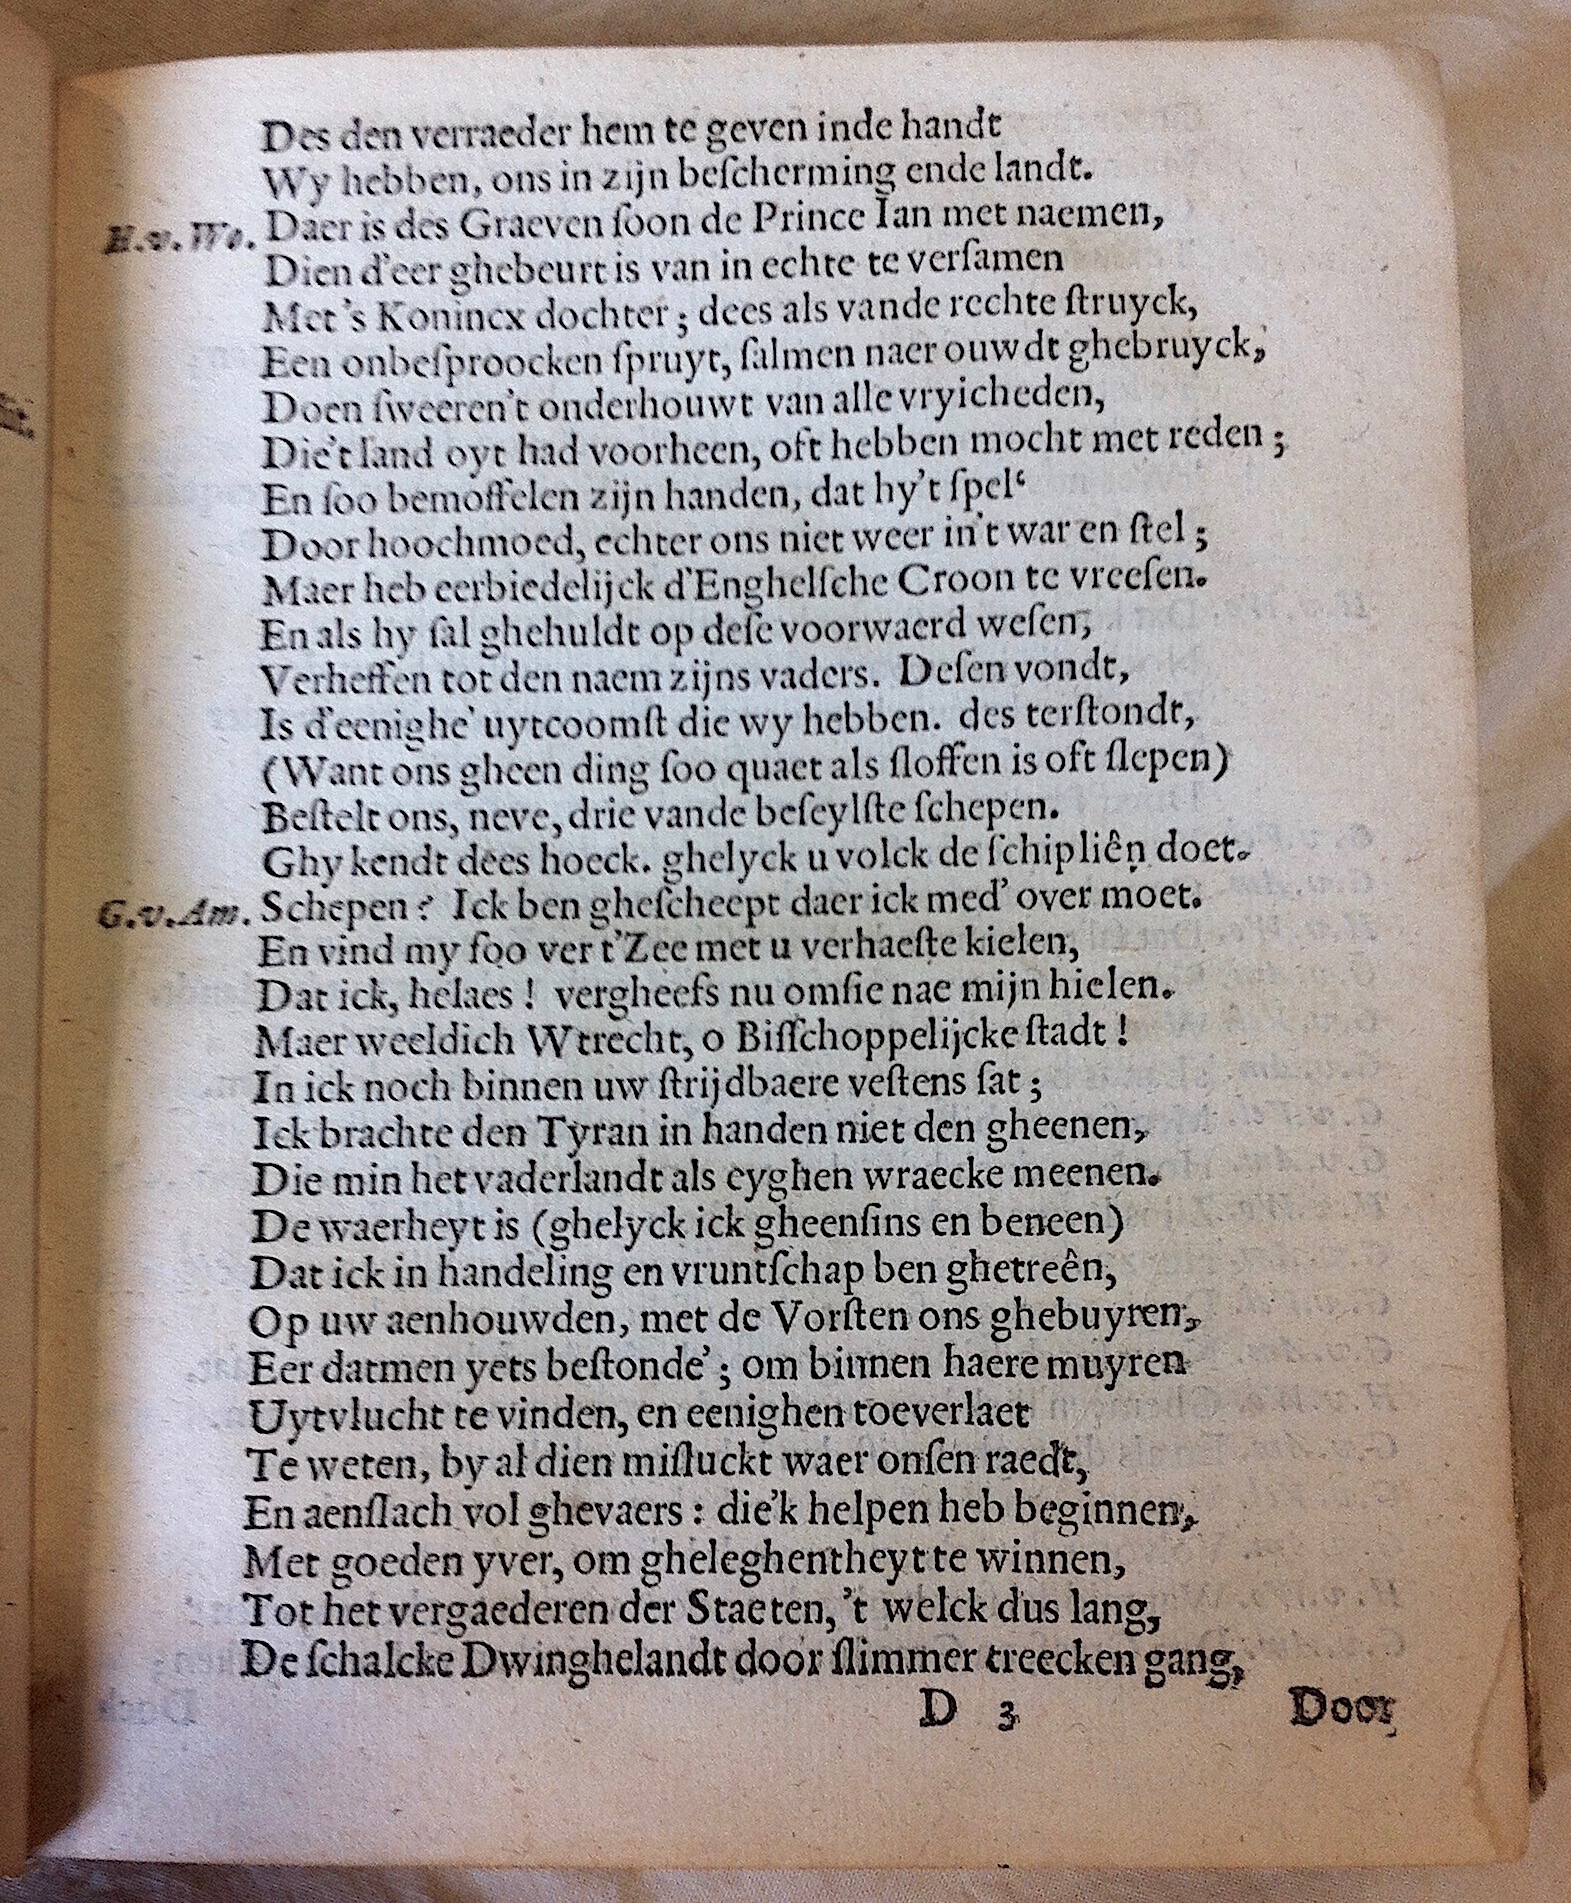 Des den verraeder hem te geven inde handt
Wy hebben, ons in zijn beſcherming ende landt.
H.v.Wo. Daer is des Graeven ſoon de Prince Ian met naemen,
Dien d'eer ghebeurt is van in echte te verſamen
Met 's Konincx dochter; dees als vande rechte ſtruyck,
Een onbeſproocken ſpruyt, ſalmen naer ouwdt ghebruyck,
Doen ſweeren't onderhouwt van alle vryicheden,
Die't land oyt had voorheen, oft hebben mocht met reden;
En ſoo bemoffelen zijn handen, dat hy't ſpel‘
Door hoochmoed, echter ons niet weer in't war en ſtel;
Maer heb eerbiedelijck d'Enghelſche Croon te vreeſen.
En als hy ſal ghehuldt op deſe voorwaerd weſen,
Verheffen tot den naem zijns vaders. Deſen vondt,
Is d'eenighe' uytcoomſt die wy hebben. des terſtondt,
(Want ons gheen ding ſoo quaet als ſloffen is oft ſlepen)
Beſtelt ons, neve, drie vande beſeylſte ſchepen.
Ghy kendt dees hoeck. ghelyck u volck de ſchipliên doet.
G.v.Am. Schepen? Ick ben gheſcheept daer ick med' over moet.
En vind my ſoo ver t'Zee met u verhaeſte kielen,
Dat ick, helaes! vergheefs nu omſie nae mijn hielen.
Maer weeldich Wtrecht, o Biſſchoppelijcke ſtadt!
In ick noch binnen uw ſtrijdbaere veſtens ſat;
Ick brachte den Tyran in handen niet den gheenen,
Die min het vaderlandt als eyghen wraecke meenen.
De waerheyt is (ghelyck ick gheenſins en beneen)
Dat ick in handeling en vruntſchap ben ghetreên,
Op uw aenhouwden, met de Vorſten ons ghebuyren,
Eer datmen yets beſtonde'; om binnen haere muyren
Uytvlucht te vinden, en eenighen toeverlaet
Te weten, by al dien miſluckt waer onſen raedt,
En aenſlach vol ghevaers: die'k helpen heb beginnen,
Met goeden yver, om gheleghentheyt te winnen,
Tot het vergaederen der Staeten, 't welck dus lang,
De ſchalcke Dwinghelandt door ſlimmer treecken gang,
D 3 Door